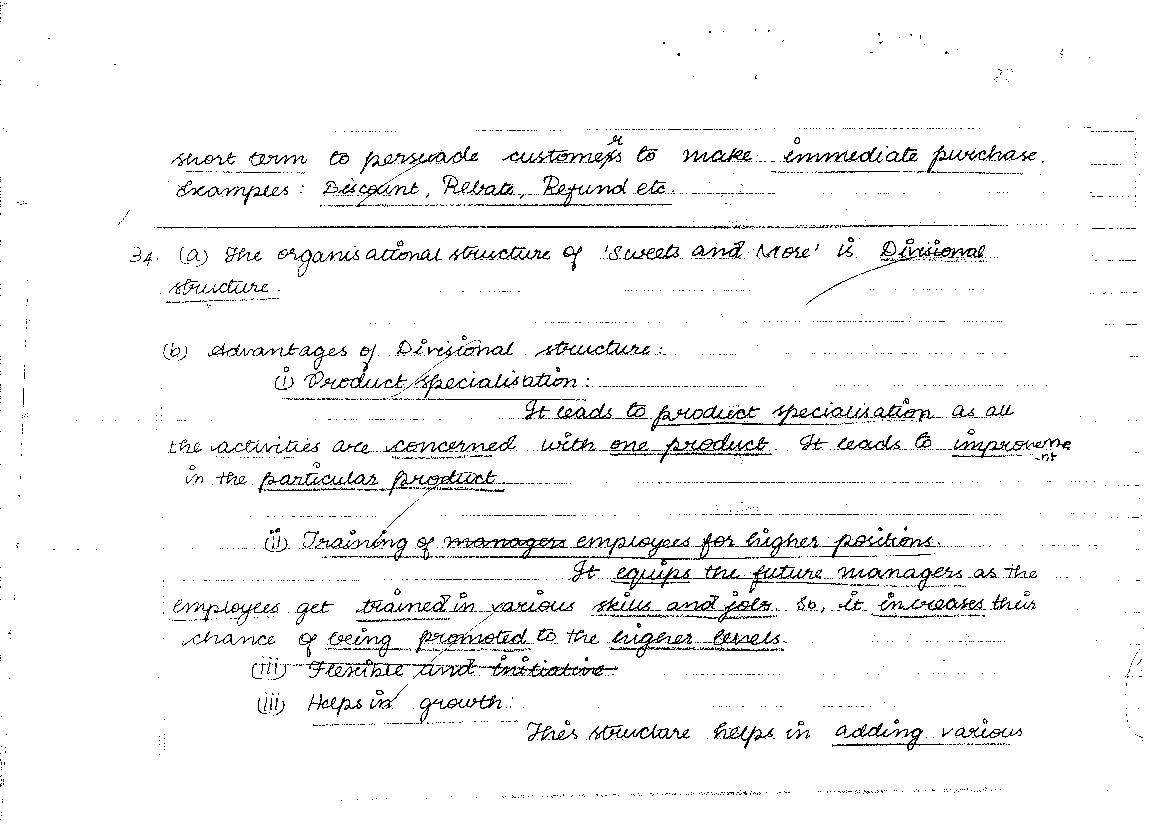 short term to persuade customers to make immediate purchase.
Examples: Discount, Rebate, Refund etc.
34. (a) The organisational structure of 'Sweets and More' is Divisional
structure.
(b) Advantages of Divisional structure:
(i) Product specialisation:
It leads to product specialisation as all
the activities are concerned with one product. It leads to improveme
nt
in the particular product.
(ii) Training of managers employees for higher positions.
It equips the future managers as the
employees get trained in various skills and jobs. So, it increases their
chance of being promoted to the higher levels.
(iii) Flexible and initiative
(iii) Helps in growth:
This structure helps in adding various